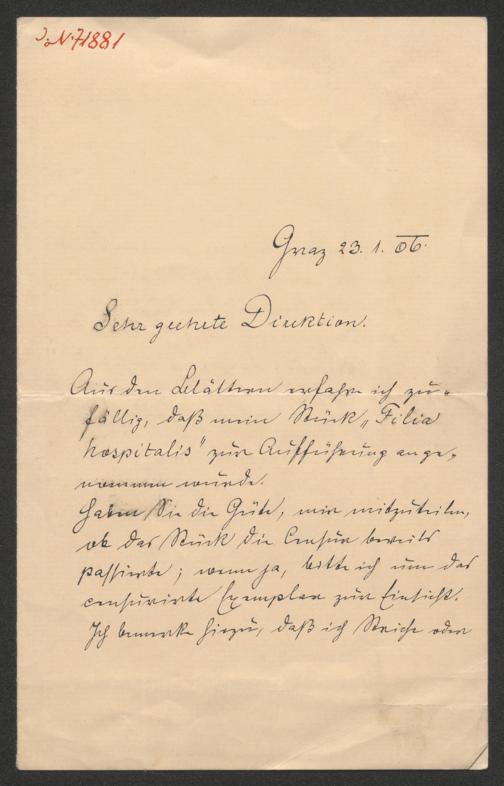 I.N. 71881
Graz 23. 1. 06.
Sehr geehrte Direktion.
Aus den Blättern erfahre ich zu-
fällig, daß mein Stück „Filia
hospitalis" zur Aufführung ange-
nommen wurde.
Haben Sie die Güte, mir mitzuteilen,
ob das Stück die Censur bereits
passierte; wenn ja, bitte ich um das
censurirte Exemplar zur Einsicht.
Ich bemerke hiezu, daß ich Striche oder